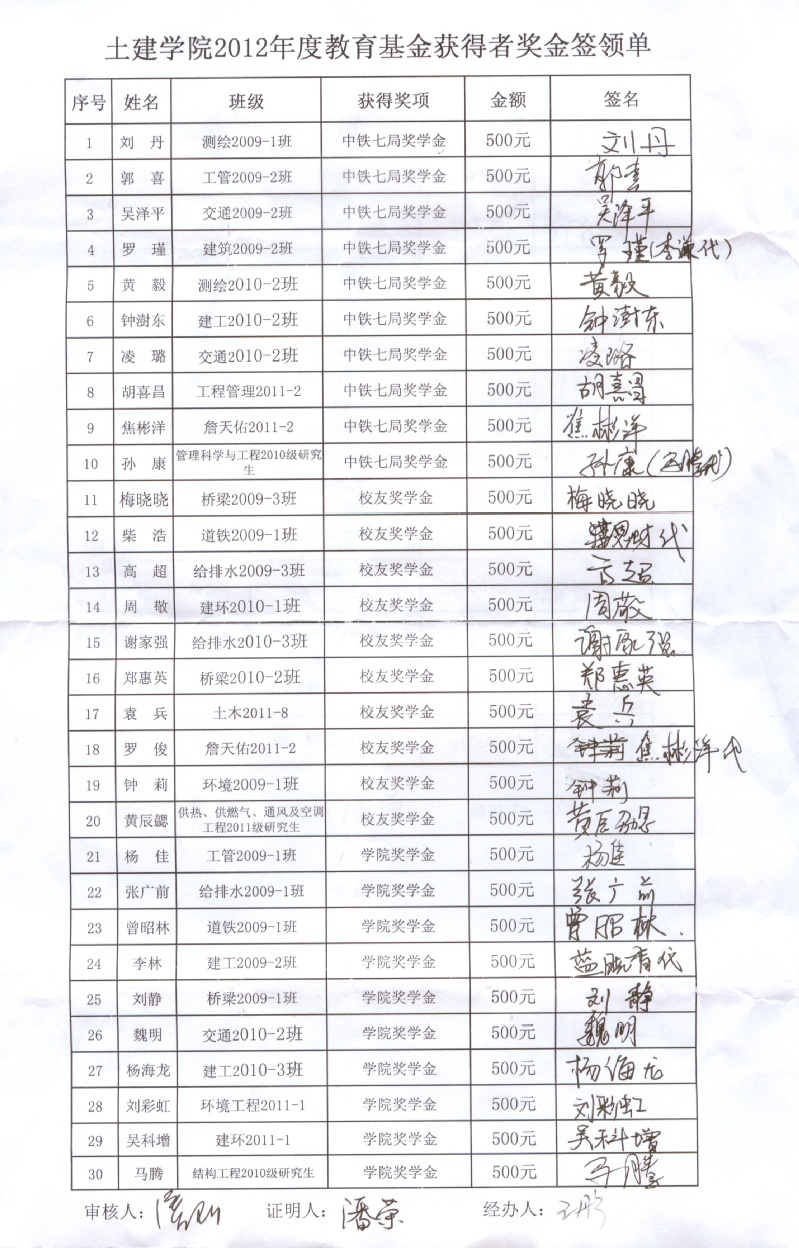 土建学院2012年度教育基金获得者奖金签领单
序号 姓名 班级 获得奖项 金额 签名
1 刘 丹 测绘2009-1班 中铁七局奖学金 500元 刘丹
2 郭 喜 工管2009-2班 中铁七局奖学金 500元 郭喜
3 吴泽平 交通2009-2班 中铁七局奖学金 500元 吴泽平
4 罗 瑾 建筑2009-2班 中铁七局奖学金 500元 罗瑾(李谦代)
5 黄 毅 测绘2010-2班 中铁七局奖学金 500元 黄毅
6 钟澍东 建工2010-2班 中铁七局奖学金 500元 钟澍东
7 凌 璐 交通2010-2班 中铁七局奖学金 500元 凌璐
8 胡喜昌 工程管理2011-2 中铁七局奖学金 500元 胡熹昌
9 焦彬洋 詹天佑2011-2 中铁七局奖学金 500元 焦彬洋
10 孙 康 管理科学与工程2010级研究生 中铁七局奖学金 500元 孙康(马腾代)
11 梅晓晓 桥梁2009-3班 校友奖学金 500元 梅晓晓
12 柴 浩 道铁2009-1班 校友奖学金 500元 代
13 高 超 给排水2009-3班 校友奖学金 500元 高超
14 周 敬 建环2010-1班 校友奖学金 500元 周敬
15 谢家强 给排水2010-3班 校友奖学金 500元 谢家强
16 郑惠英 桥梁2010-2班 校友奖学金 500元 郑惠英
17 袁 兵 土木2011-8 校友奖学金 500元 袁兵
18 罗 俊 詹天佑2011-2 校友奖学金 500元 钟莉 焦彬洋代
19 钟 莉 环境2009-1班 校友奖学金 500元 钟莉
20 黄辰勰 供热、供燃气、通风及空调工程2011级研究生 校友奖学金 500元 黄辰勰
21 杨 佳 工管2009-1班 学院奖学金 500元 杨佳
22 张广前 给排水2009-1班 学院奖学金 500元 张广前
23 曾昭林 道铁2009-1班 学院奖学金 500元 曾昭林
24 李林 建工2009-2班 学院奖学金 500元 蓝晓香代
25 刘静 桥梁2009-1班 学院奖学金 500元 刘静
26 魏明 交通2010-2班 学院奖学金 500元 魏明
27 杨海龙 建工2010-3班 学院奖学金 500元 杨海龙
28 刘彩虹 环境工程2011-1 学院奖学金 500元 刘彩虹
29 吴科增 建环2011-1 学院奖学金 500元 吴科增
30 马腾 结构工程2010级研究生 学院奖学金 500元 马腾
审核人: 证明人:潘荣 经办人:王彤